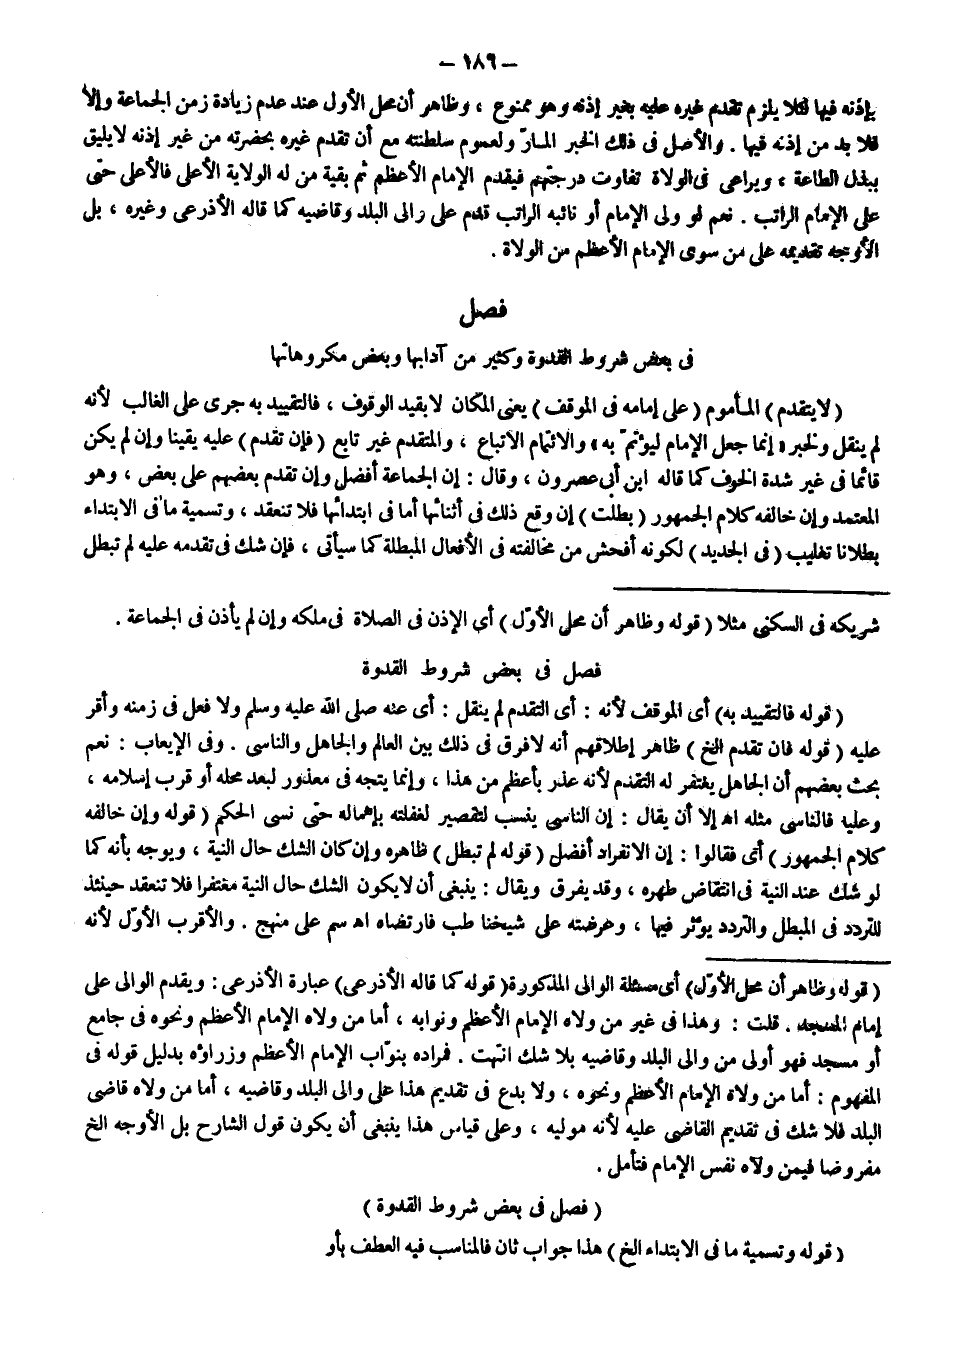 — ١٨٩ —
بإذنه فيها لئلا يلزم تقدم غيره عليه بغير إذنه وهو ممنوع ، وظاهر أن محل الأول عند عدم زيادة زمن الجماعة وإلا
فلا بد من إذنه فيها . والأصل فى ذلك الخبر المارّ ولعموم سلطنته مع أن تقدم غيره بحضرته من غير إذنه لا يليق
ببذل الطاعة ، ويراعى فى الولاة تفاوت درجتهم فيقدم الإمام الأعظم ثم بقية من له الولاية الأعلى فالأعلى حتى
على الإمام الراتب . نعم لو ولى الإمام أو نائبه الراتب قدم على والى البلد وقاضيه كما قاله الأذرعى وغيره ، بل
الأوجه تقديمه على من سوى الإمام الأعظم من الولاة .
فصل
فى بعض شروط القدوة وكثير من آدابها وبعض مكروهاتها
( لا يتقدم ) المأموم ( على إمامه فى الموقف ) يعنى المكان لا بقيد الوقوف ، فالتقييد به جرى على الغالب لأنه
لم ينقل ولخبر « إنما جعل الإمام ليؤتمّ به » والائتمام الاتباع ، والمتقدم غير تابع ( فإن تقدم ) عليه يقينا وإن لم يكن
قائما فى غير شدة الخوف كما قاله ابن أبى عصرون ، وقال : إن الجماعة أفضل وإن تقدم بعضهم على بعض ، وهو
المعتمد وإن خالفه كلام الجمهور ( بطلت ) إن وقع ذلك فى أثنائها أما فى ابتدائها فلا تنعقد ، وتسمية ما فى الابتداء
بطلانا تغليب ( فى الجديد ) لكونه أفحش من مخالفته فى الأفعال المبطلة كما سيأتى ، فإن شك فى تقدمه عليه لم تبطل
شريكه فى السكنى مثلا ( قوله وظاهر أن محل الأوّل ) أى الإذن فى الصلاة فى ملكه وإن لم يأذن فى الجماعة .
فصل فى بعض شروط القدوة
( قوله فالتقييد به ) أى الموقف لأنه : أى التقدم لم ينقل : أى عنه صلى الله عليه وسلم ولا فعل فى زمنه وأقر
عليه ( قوله فان تقدم الخ ) ظاهر إطلاقهم أنه لا فرق فى ذلك بين العالم والجاهل والناسى . وفى الإيعاب : نعم
بحث بعضهم أن الجاهل يغتفر له التقدم لأنه عذر بأعظم من هذا ، وإنما يتجه فى معذور لبعد محله أو قرب إسلامه ،
وعليه فالناسى مثله اهـ إلا أن يقال : إن الناسى ينسب لتقصير لغفلته بإهماله حتى نسى الحكم ( قوله وإن خالفه
كلام الجمهور ) أى فقالوا : إن الانفراد أفضل ( قوله لم تبطل ) ظاهره وإن كان الشك حال النية ، ويوجه بأنه كما
لو شك عند النية فى انتقاض طهره ، وقد يفرق ويقال : ينبغى أن لا يكون الشك حال النية مغتفرا فلا تنعقد حينئذ
للتردد فى المبطل والتردد يؤثر فيها ، وعرضته على شيخنا طب فارتضاه اهـ سم على منهج . والأقرب الأوّل لأنه
( قوله وظاهر أن محل الأوّل ) أى مسئلة الوالى المذكورة ( قوله كما قاله الأذرعى ) عبارة الأذرعى : ويقدم الوالى على
إمام المسجد . قلت : وهذا فى غير من ولاه الإمام الأعظم ونوابه ، أما من ولاه الإمام الأعظم ونحوه فى جامع
أو مسجد فهو أولى من والى البلد وقاضيه بلا شك انتهت . فمراده بنوّاب الإمام الأعظم وزراؤه بدليل قوله فى
المفهوم : أما من ولاه الإمام الأعظم ونحوه ، ولا بدع فى تقديم هذا على والى البلد وقاضيه ، أما من ولاه قاضى
البلد فلا شك فى تقديم القاضى عليه لأنه موليه ، وعلى قياس هذا ينبغى أن يكون قول الشارح بل الأوجه الخ
مفروضا فيمن ولاه نفس الإمام فتأمل .
( فصل فى بعض شروط القدوة )
( قوله وتسمية ما فى الابتداء الخ ) هذا جواب ثان فالمناسب فيه العطف بأو